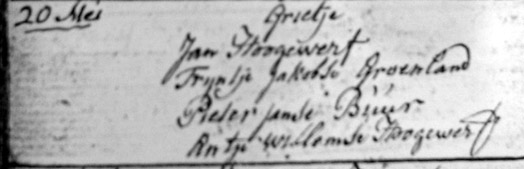 20 Mei Grietje
Jan Hoogewerf
Tryntje Jakobse Groenland
Pieter Janse Buur
Antje Willemse Hoogewerf